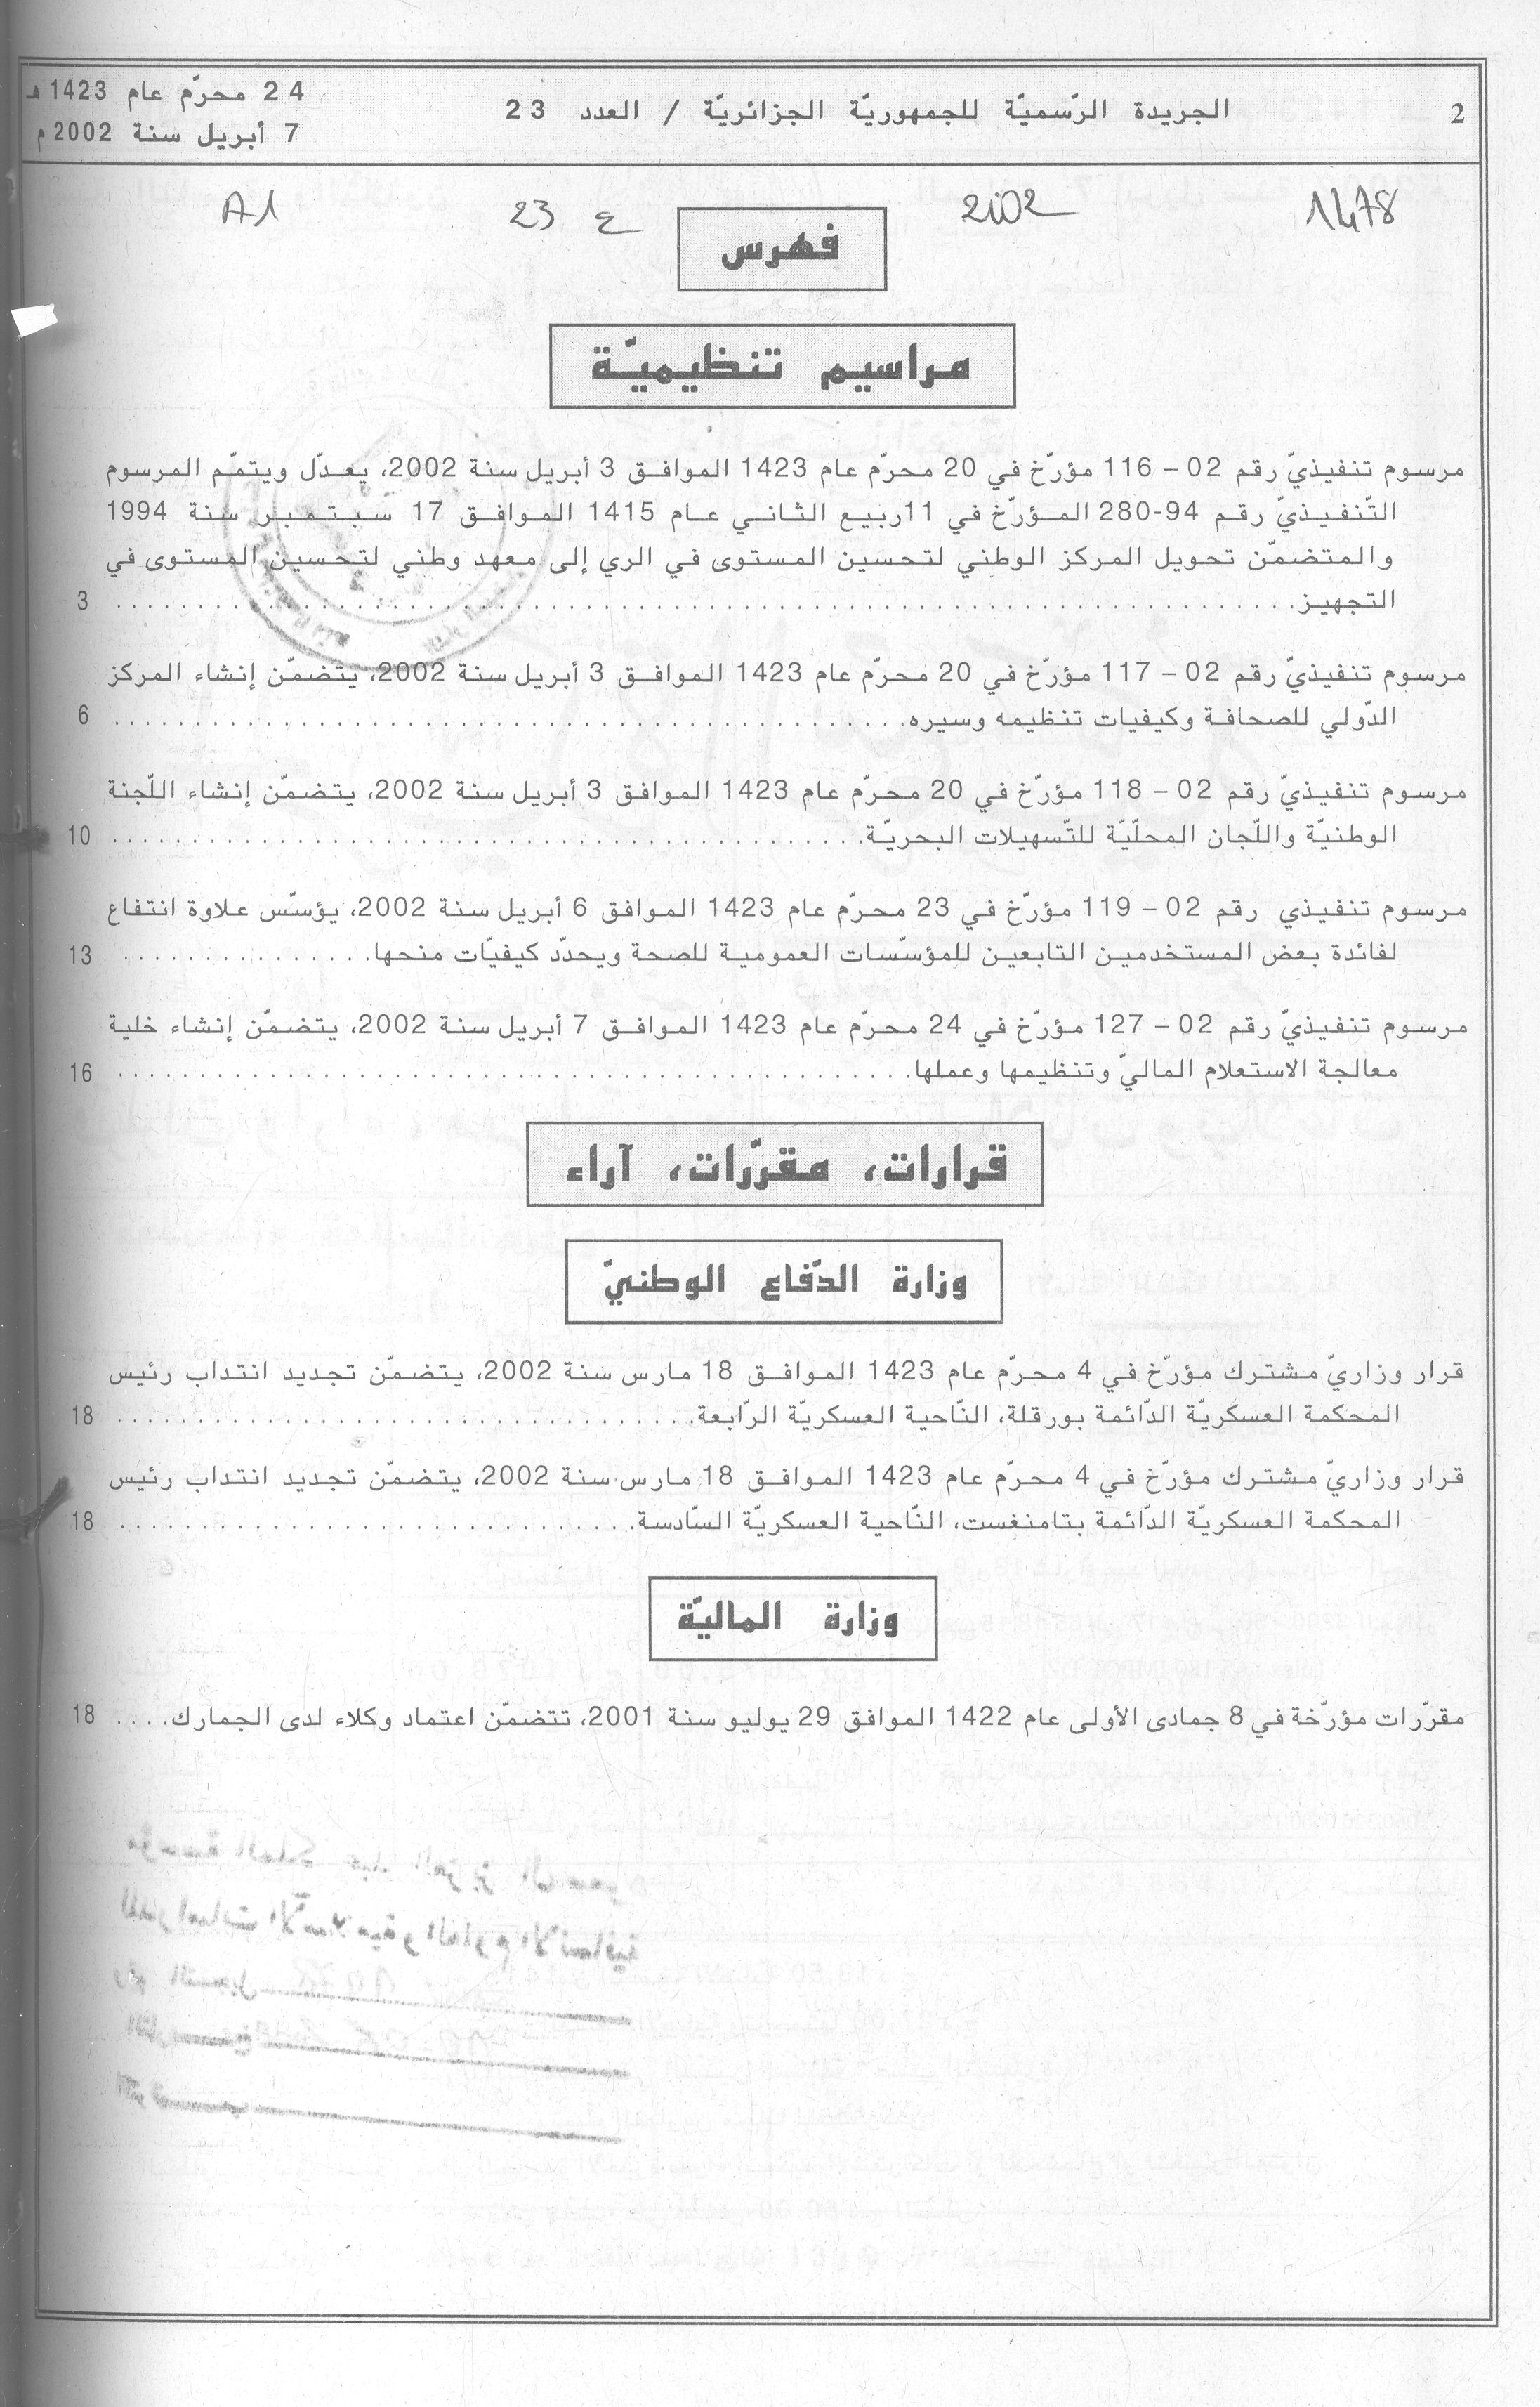 2
الجريدة الرّسميّة للجمهوريّة الجزائريّة / العدد 23
24 محرّم عام 1423 هـ
7 أبريل سنة 2002 م
1478
2002
ع 23
A1
فهرس
مراسيم تنظيميّة
مرسوم تنفيذيّ رقم 02 – 116 مؤرّخ في 20 محرّم عام 1423 الموافق 3 أبريل سنة 2002، يعدّل ويتمّم المرسوم
التّنفيذيّ رقم 94-280 المؤرّخ في 11 ربيع الثاني عام 1415 الموافق 17 سبتمبر سنة 1994
والمتضمّن تحويل المركز الوطني لتحسين المستوى في الري إلى معهد وطني لتحسين المستوى في
التجهيز. . . . . . . . . . . . . . . . . . . . 3
مرسوم تنفيذيّ رقم 02 – 117 مؤرّخ في 20 محرّم عام 1423 الموافق 3 أبريل سنة 2002، يتضمّن إنشاء المركز
الدّولي للصحافة وكيفيات تنظيمه وسيره. . . . . . . . . . . . . . . . . . . . 6
مرسوم تنفيذيّ رقم 02 – 118 مؤرّخ في 20 محرّم عام 1423 الموافق 3 أبريل سنة 2002، يتضمّن إنشاء اللّجنة
الوطنيّة واللّجان المحلّيّة للتّسهيلات البحريّة. . . . . . . . . . . . . . . . . . . . 10
مرسوم تنفيذي رقم 02 – 119 مؤرّخ في 23 محرّم عام 1423 الموافق 6 أبريل سنة 2002، يؤسّس علاوة انتفاع
لفائدة بعض المستخدمين التابعين للمؤسّسات العمومية للصحة ويحدّد كيفيّات منحها. . . . . . . . . . . . . . . 13
مرسوم تنفيذيّ رقم 02 – 127 مؤرّخ في 24 محرّم عام 1423 الموافق 7 أبريل سنة 2002، يتضمّن إنشاء خلية
معالجة الاستعلام الماليّ وتنظيمها وعملها. . . . . . . . . . . . . . . . . . . . 16
قرارات، مقرّرات، آراء
وزارة الدّفاع الوطنيّ
قرار وزاريّ مشترك مؤرّخ في 4 محرّم عام 1423 الموافق 18 مارس سنة 2002، يتضمّن تجديد انتداب رئيس
المحكمة العسكريّة الدّائمة بورقلة، النّاحية العسكريّة الرّابعة. . . . . . . . . . . . . . . . . . . . 18
قرار وزاريّ مشترك مؤرّخ في 4 محرّم عام 1423 الموافق 18 مارس سنة 2002، يتضمّن تجديد انتداب رئيس
المحكمة العسكريّة الدّائمة بتامنغست، النّاحية العسكريّة السّادسة. . . . . . . . . . . . . . . . . . . . 18
وزارة الماليّة
مقرّرات مؤرّخة في 8 جمادى الأولى عام 1422 الموافق 29 يوليو سنة 2001، تتضمّن اعتماد وكلاء لدى الجمارك. . . . 18